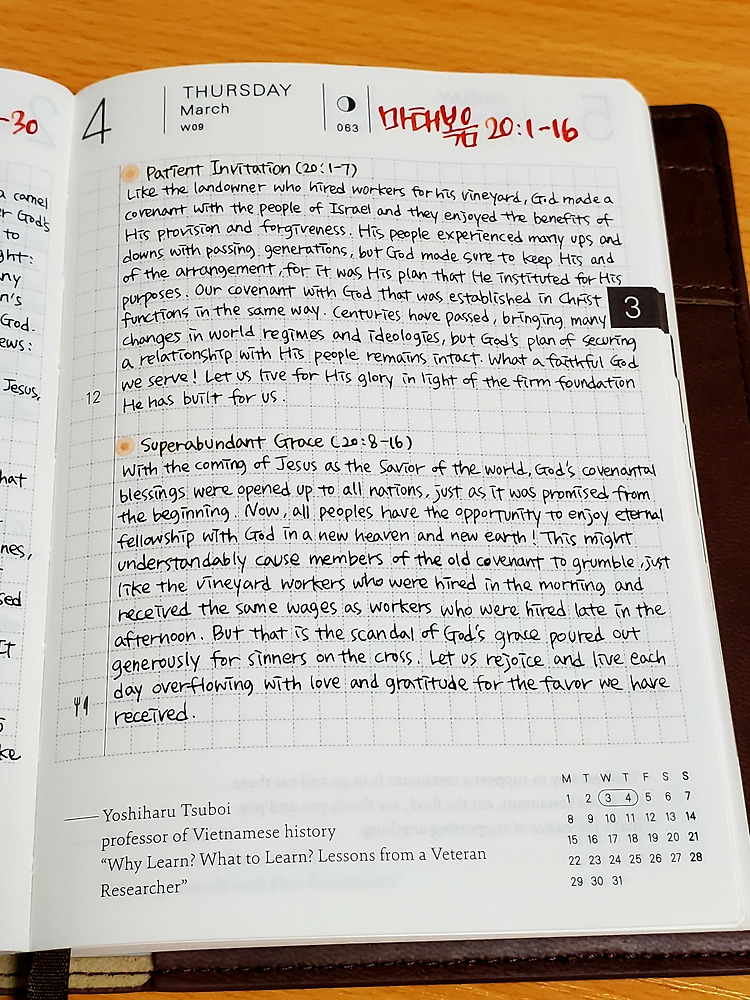 -30
a camel
r God's
to
ght:
ny
n's
God.
ews:
Jesus,
hat
nes,
sed
It
ke
4
THURSDAY
March
W09
063
마태복음 20:1-16
Patient Invitation (20:1-7)
Like the landowner who hired workers for his vineyard, God made a
covenant with the people of Israel and they enjoyed the benefits of
His provision and forgiveness. His people experienced many ups and
downs with passing generations, but God made sure to keep His end
of the arrangement, for it was His plan that He instituted for His
purposes. Our covenant with God that was established in Christ
functions in the same way. Centuries have passed, bringing many
changes in world regimes and ideologies, but God's plan of securing
a relationship with His people remains intact. What a faithful God
we serve! Let us live for His glory in light of the firm foundation
He has built for us.
3
12
Superabundant Grace (20:8-16)
With the coming of Jesus as the Savior of the world, God's covenantal
blessings were opened up to all nations, just as it was promised from
the beginning. Now, all peoples have the opportunity to enjoy eternal
fellowship with God in a new heaven and new earth! This might
understandably cause members of the old covenant to grumble, just
like the vineyard workers who were hired in the morning and
received the same wages as workers who were hired late in the
afternoon. But that is the scandal of God's grace poured out
generously for sinners on the cross. Let us rejoice and live each
day overflowing with love and gratitude for the favor we have
received.
—— Yoshiharu Tsuboi
professor of Vietnamese history
“Why Learn? What to Learn? Lessons from a Veteran
Researcher”
M T W T F S S
1 2 3 4 5 6 7
8 9 10 11 12 13 14
15 16 17 18 19 20 21
22 23 24 25 26 27 28
29 30 31